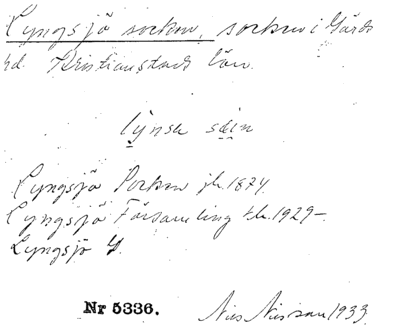 Lyngsjö socken, socken i Gärds
hd. Kristianstads län.
lynsu
Lyngsjö Socken jb. 1874.
Lyngsjö Församling tb. 1929–.
Lyngsjö
Nr 5336. Nils Nilsson 1933.